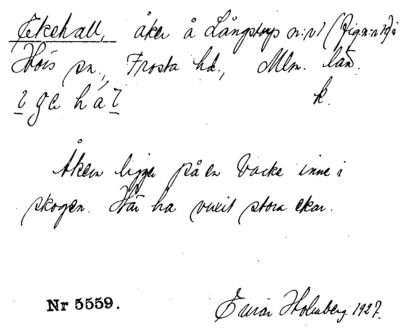 Ekehall, åker å Långstorps n:r 1 (Fig. n:r 19) i
Hörs sn., Frosta hd., Mlm. län.
k.
Åkern ligger på en backe inne i
skogen. Här ha vuxit stora ekar.
Nr 5559. Einar Holmberg. 1927.